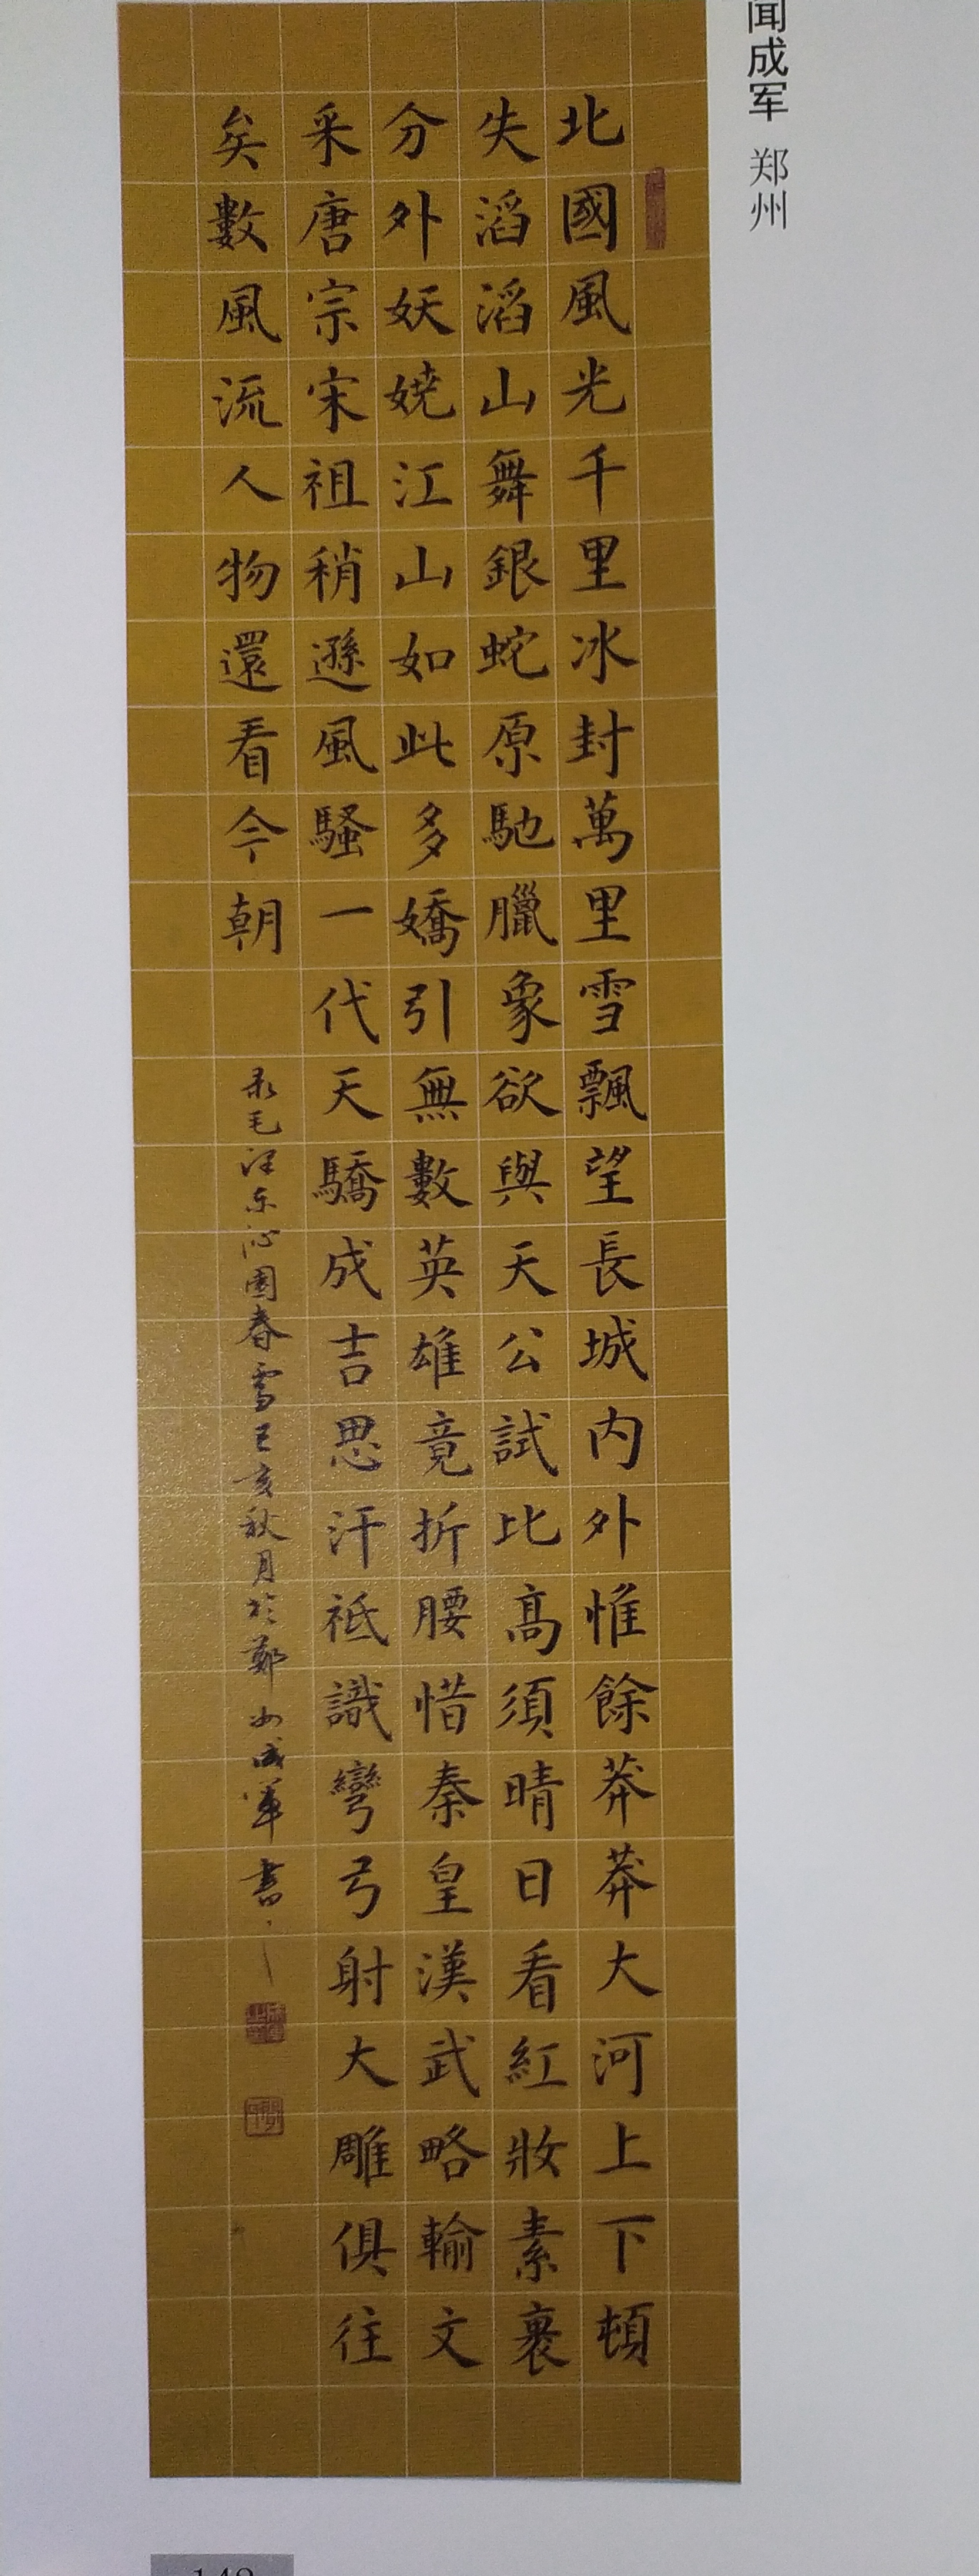 闻成军 郑州
北國風光千里冰封萬里雪飄望長城内外惟餘莽莽大河上下頓
失滔滔山舞銀蛇原馳臘象欲與天公試比高須晴日看紅妝素裹
分外妖嬈江山如此多嬌引無數英雄竟折腰惜秦皇漢武略輸文
采唐宗宋祖稍遜風騷一代天驕成吉思汗祗識彎弓射大雕俱往
矣數風流人物還看今朝
录毛泽东沁園春雪己亥秋月於鄭州成軍書